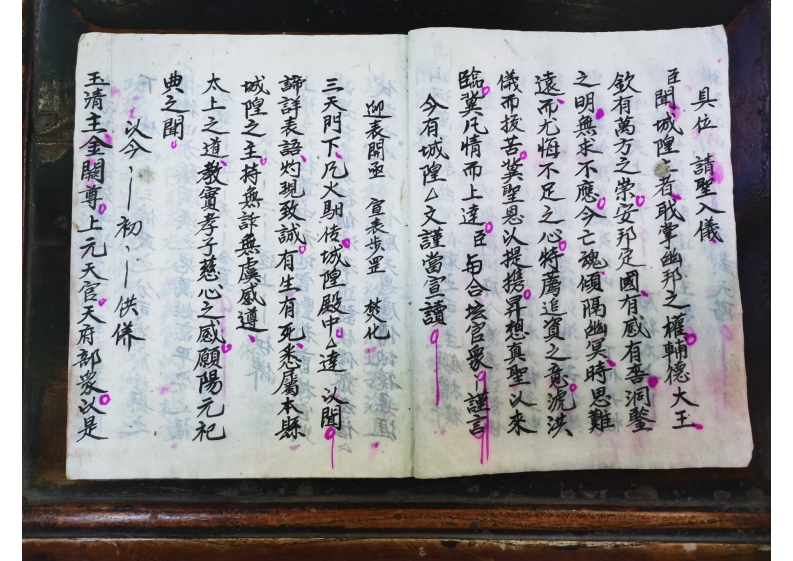 具位　請聖入儀
臣聞城隍土者職掌幽邦之權輔德大王
欽有萬方之崇安邦定國有感有吾洞鑒
之明無求不應今亡魂傾隔幽冥時思難
遠而尤悔不足之心特薦追資之意淲洪
儀而拔苦冀聖恩以提携昇想真聖以來
臨冀凡情而上達臣与合坛官衆謹言
今有城隍文謹當宣讀
迎表開函　宣表步罡　焚化
三天門下凡火馹传城隍殿中達以聞
諦詳表語灼現致誠有生有死悉屬本縣
城隍之主持無詐無虞咸遵
太上之道教寔孝子慈心之感願陽元祀
典之聞
以今初供僯
玉清主金闕尊上元天官天府部眾以是